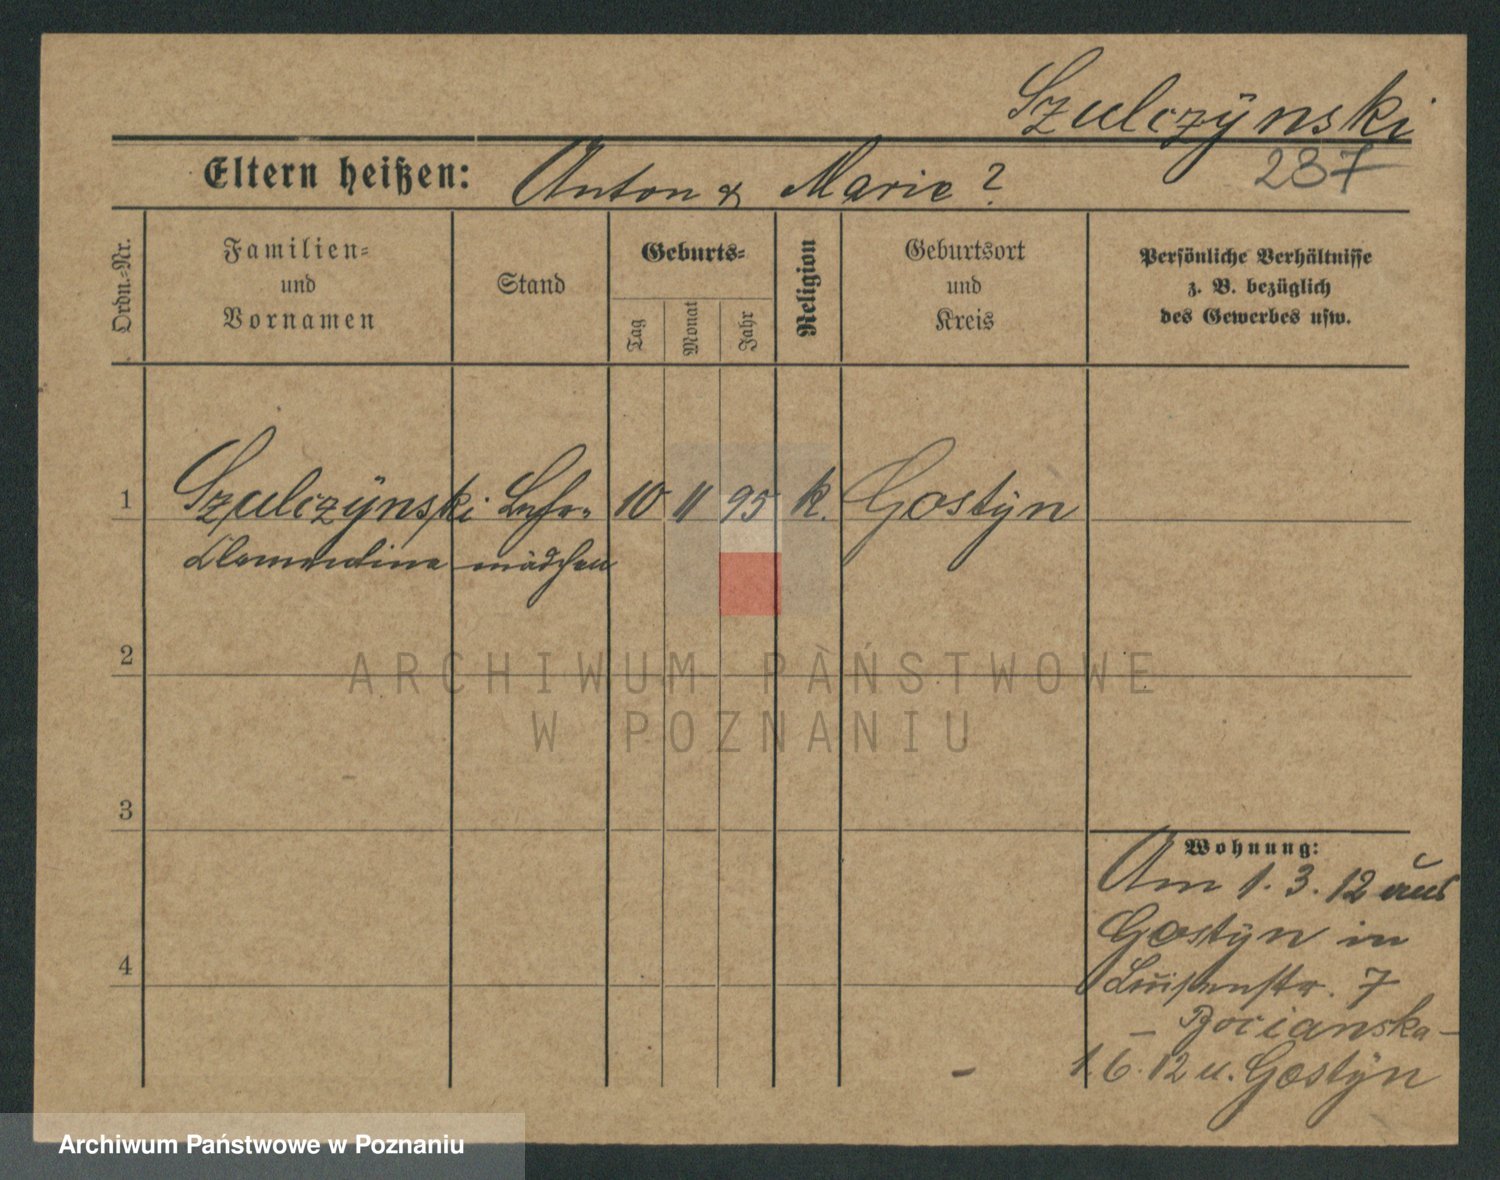 Szulczÿnski
237
Eltern heißen: Anton & Marie?
Ordn.-Nr.
Familien-
und
Vornamen
Stand
Geburts-
Tag
Monat
Jahr
Religion
Geburtsort
und
Kreis
Persönliche Verhältnisse
z. B. bezüglich
des Gewerbes usw.
1 Szulczÿnski Lehr- 10 11 95 k. Gostÿn
Clementine mädchen
2
ARCHIWUM PAŃSTWOWE
W POZNANIU
3
Wohnung:
Am 1. 3. 12 aus
Gostÿn in
4
Luisenstr. 7
– Bocianska –
1.6.12 u. Gostÿn
Archiwum Państwowe w Poznaniu